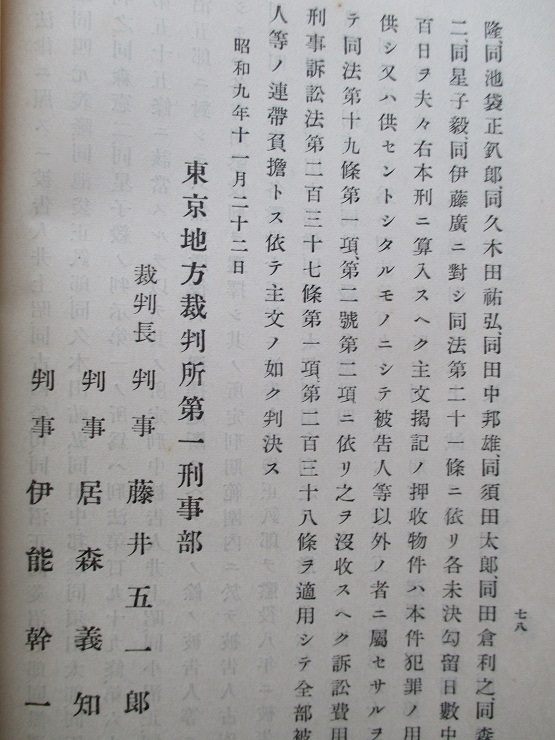 隆、同池袋正釟郎、同久木田祐弘、同田中邦雄、同須田太郎、同田倉利之、同森
二、同星子毅、同伊藤廣ニ對シ同法第二十一條ニ依リ各未決勾留日數中
百日ヲ夫々右本刑ニ算入スヘク主文揭記ノ押收物件ハ本件犯罪ノ用
供シ又ハ供セントシタルモノニシテ被告人等以外ノ者ニ屬セサルヲ
テ同法第十九條第一項、第二號第二項ニ依リ之ヲ沒收スヘク訴訟費用
刑事訴訟法第二百三十七條第一項、第二百三十八條ヲ適用シテ全部被
人等ノ連帶負擔トス依テ主文ノ如ク判決ス
昭和九年十一月二十二日
東京地方裁判所第一刑事部
裁判長判事 藤井五一郎
判事 居森義知
判事 伊能幹一
七八